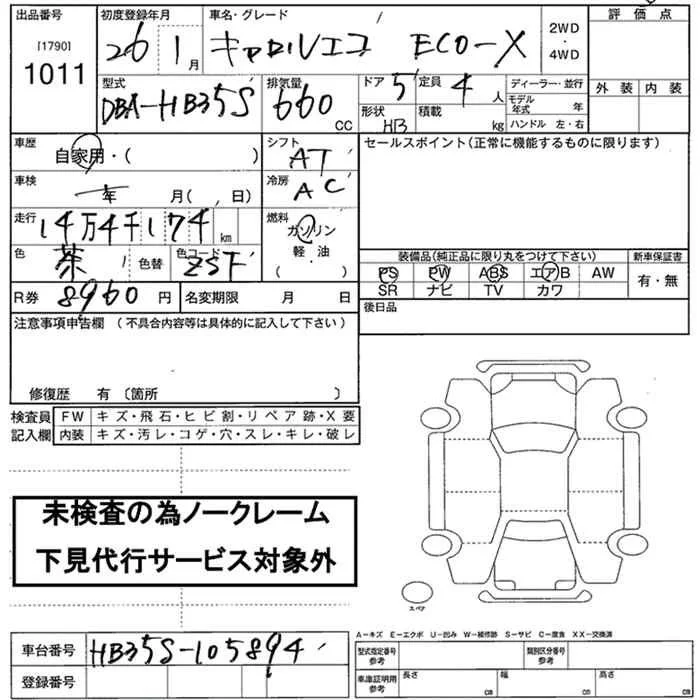 出品番号 初度登録年月 車名・グレード 評価点
[1790] 1011 26 1月 キャロルエコ ECO-X 2WD・4WD
型式 排気量 ドア 5 定員 4人 ディーラー・並行 外装 内装
DBA-HB35S 660 CC 形状 HB 積載 kg モデル年式 年
ハンドル 左・右
車歴 自家用・( ) シフト AT セールスポイント(正常に機能するものに限ります)
車検 年 月( 日) 冷房 AC
走行 14万4千174 km 燃料 ガソリン
軽・油
( )
色 茶 色替 色コード ZSF 装備品(純正品に限り丸をつけて下さい) 新車保証書
PS PW ABS エアB AW 有・無
SR ナビ TV カワ
R券 8960円 名変期限 月 日 後日品
注意事項申告欄 (不具合内容等は具体的に記入して下さい)
修復歴 有 〔箇所 〕
検査員 FW キズ・飛石・ヒビ割・リペア跡・X要
記入欄 内装 キズ・汚レ・コゲ・穴・スレ・キレ・破レ
未検査の為ノークレーム
下見代行サービス対象外
スペア
A-キズ E-エクボ U-凹み W-補修跡 S-サビ C-腐食 XX-交換済
車台番号 HB35S-105894 型式指定番号 参考 類別区分番号 参考
登録番号 車庫証明用 参考 長さ cm 幅 cm 高さ cm